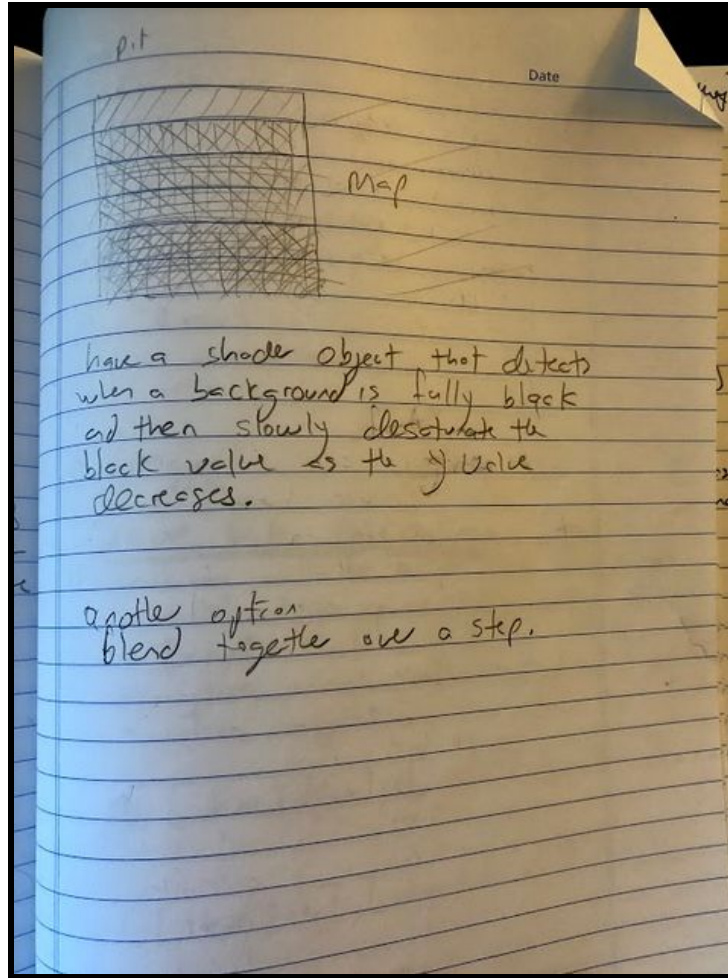 pit
Date
Map
have a shader object that detects
when a background is fully black
and then slowly desaturate the
black value as the y value
decreases.
another option
blend together over a step.